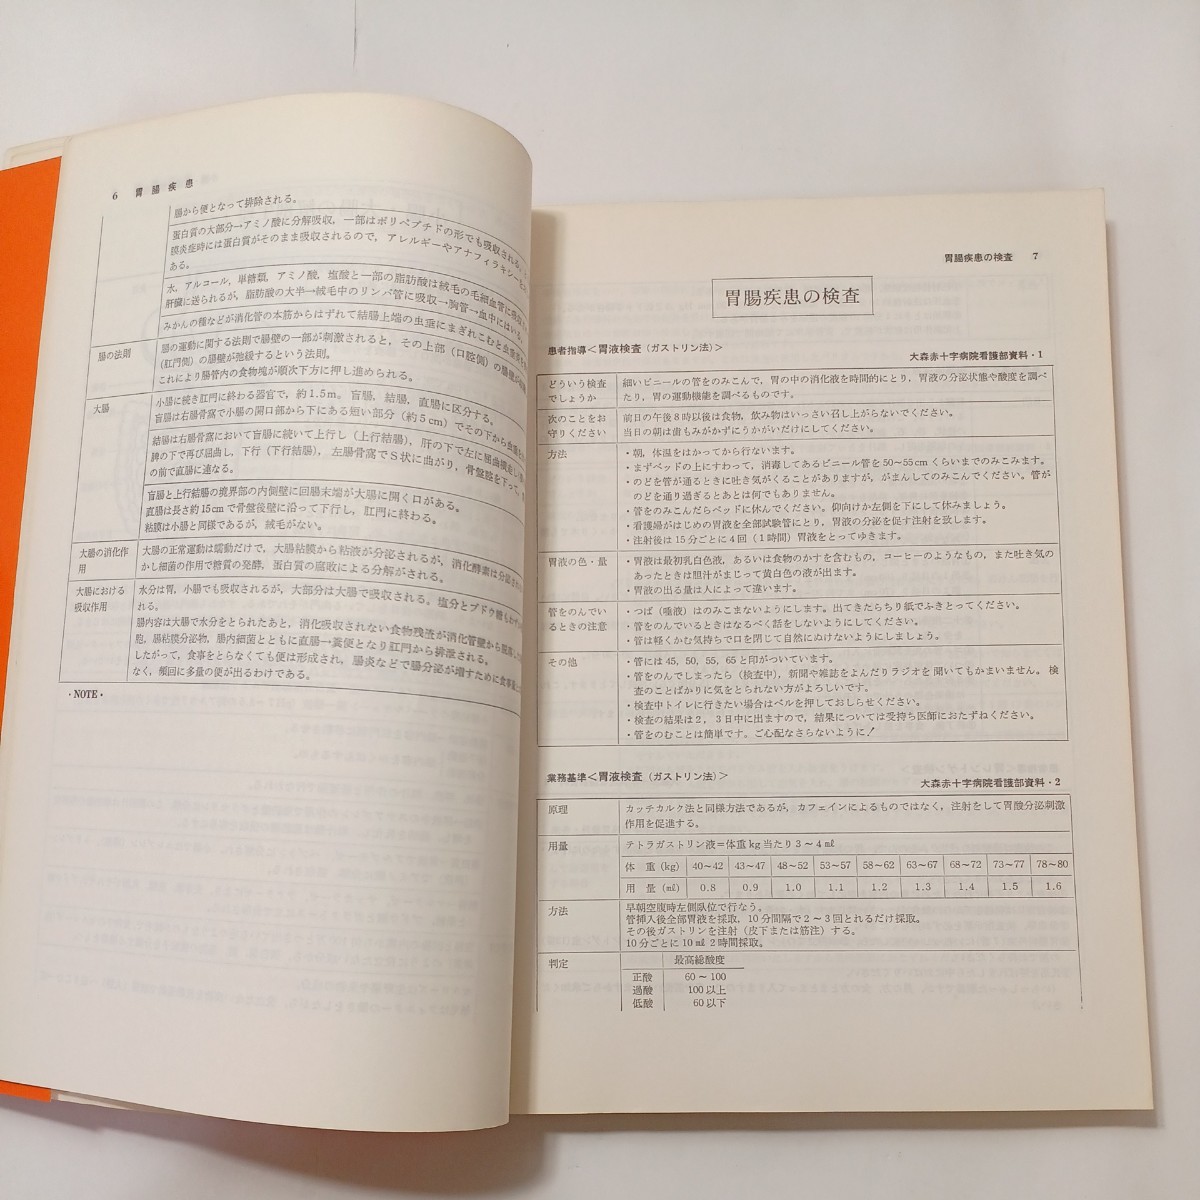 6 胃腸疾患
腸から便となって排除される。
蛋白質の大部分→アミノ酸に分解吸収，一部はポリペプチドの形でも吸収される。
膜炎症時には蛋白質がそのまま吸収されるので，アレルギーやアナフィラキシー
ある。
水，アルコール，単糖類，アミノ酸，塩酸と一部の脂肪酸は絨毛の毛細血管に吸収
肝臓に送られるが，脂肪酸の大半→絨毛中のリンパ管に吸収→胸管→血中にはいる。
みかんの種などが消化管の本筋からはずれて結腸上端の虫垂にまぎれこむと虫垂炎
腸の法則
腸の運動に関する法則で腸壁の一部が刺激されると，その上部（口腔側）の腸壁が
（肛門側）の腸壁が弛緩するという法則。
これにより腸管内の食物塊が順次下方に押し進められる。
大腸
小腸に続き肛門に終わる器官で，約1.5m。盲腸，結腸，直腸に区分する。
盲腸は右腸骨窩で小腸の開口部から下にある短い部分（約5cm）でその下から虫垂
結腸は右腸骨窩において盲腸に続いて上行し（上行結腸），肝の下で左に屈曲
脾の下で再び屈曲し，下行（下行結腸），左腸骨窩でS状に曲がり，骨盤腔を下って，
の前で直腸に連なる。
盲腸と上行結腸の境界部の内側壁に回腸末端が大腸に開く口がある。
直腸は長さ約15cmで骨盤後壁に沿って下行し，肛門に終わる。
粘膜は小腸と同様であるが，絨毛がない。
大腸の消化作用
大腸の正常運動は蠕動だけで，大腸粘膜から粘液が分泌されるが，消化酵素は分泌
かし細菌の作用で糖質の発酵，蛋白質の腐敗による分解がされる。
大腸における吸収作用
水分は胃，小腸でも吸収されるが，大部分は大腸で吸収される。塩分とブドウ糖も
れる。
腸内容は大腸で水分をとられたあと，消化吸収されない食物残渣が消化管壁から脱落した
胞，腸粘膜分泌物，腸内細菌とともに直腸→糞便となり肛門から排泄される。
したがって，食事をとらなくても便は形成され，腸炎などで腸分泌が増すために食事量に
なく，頻回に多量の便が出るわけである。
・NOTE・
胃腸疾患の検査 7
胃腸疾患の検査
患者指導＜胃液検査（ガストリン法）＞
大森赤十字病院看護部資料・1
どういう検査でしょうか
細いビニールの管をのみこんで，胃の中の消化液を時間的にとり，胃液の分泌状態や酸度を調べ
たり，胃の運動機能を調べるものです。
次のことをお守りください
前日の午後8時以後は食物，飲み物はいっさい召し上がらないでください。
当日の朝は歯もみがかずにうかがいだけにしてください。
方法
・朝，体温をはかってから行ないます。
・まずベッドの上にすわって，消毒してあるビニール管を50〜55cmくらいまでのみこみます。
・のどを管が通るときに吐き気がくることがありますが，がまんしてのみこんでください。管が
のどを通り過ぎるとあとは何でもありません。
・管をのみこんだらベッドに休んでください。仰向けか左側を下にして休みます。
・看護婦がはじめの胃液を全部試験管にとり，胃液の分泌を促す注射を致します。
・注射後は15分ごとに4回（1時間）胃液をとってゆきます。
胃液の色・量
・胃液は最初乳白色液，あるいは食物のかすを含むもの，コーヒーのようなもの，また吐き気の
あったときは胆汁がまじって黄白色の液が出ます。
・胃液の出る量は人によって違います。
管をのんでいるときの注意
・つば（唾液）はのみこまないようにします。出てきたらちり紙でふきとってください。
・管をのんでいるときはなるべく話をしないようにしてください。
・管は軽くかむ気持ちで口を閉じて自然にぬけないようにしましょう。
その他
・管には45，50，55，65と印がついています。
・管をのんでしまったら（検査中），新聞や雑誌をよんだりラジオを聞いてもかまいません。検
査のことばかりに気をとられない方がよろしいです。
・検査中トイレに行きたい場合はベルを押しておしらせください。
・検査の結果は2，3日中に出ますので，結果については受持ち医師におたずねください。
・管をのむことは簡単です。ご心配なさらないように！
業務基準＜胃液検査（ガストリン法）＞
大森赤十字病院看護部資料・2
原理
カッチカルク法と同様方法であるが，カフェインによるものではなく，注射をして胃酸分泌刺激
作用を促進する。
用量
テトラガストリン液＝体重kg当たり3〜4㎖
体重（kg） 40〜42 43〜47 48〜52 53〜57 58〜62 63〜67 68〜72 73〜77 78〜80
用量（㎖） 0.8 0.9 1.0 1.1 1.2 1.3 1.4 1.5 1.6
方法
早朝空腹時左側臥位で行なう。
管挿入後全部胃液を採取，10分間隔で2〜3回とれるだけ採取。
その後ガストリンを注射（皮下または筋注）する。
10分ごとに10㎖ 2時間採取。
判定
最高総酸度
正酸 60〜100
過酸 100以上
低酸 60以下